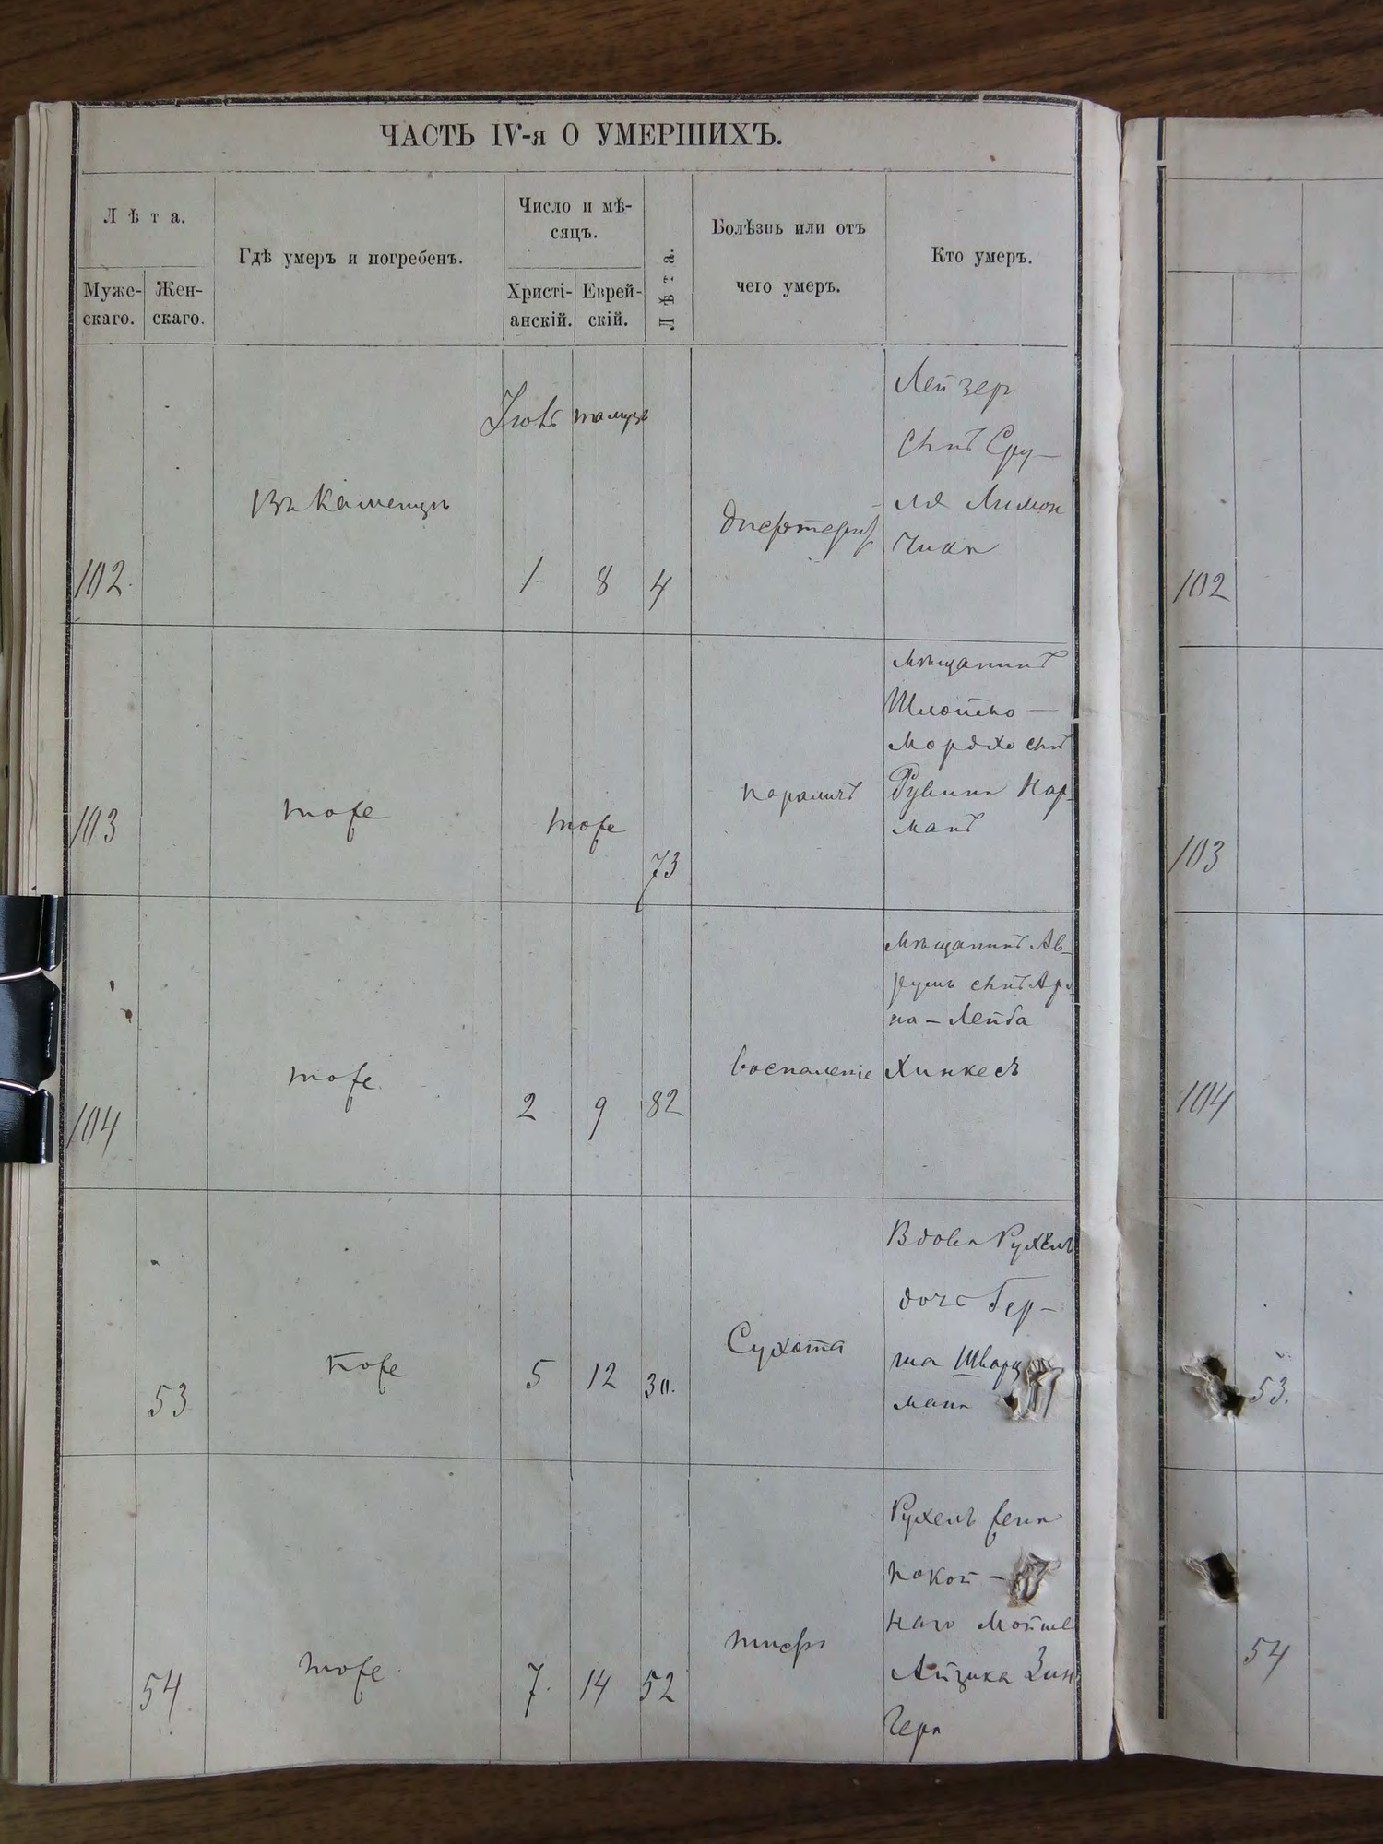 ЧАСТЬ IV-я О УМЕРШИХЪ.
Лѣта.
Муже-
скаго.
Жен-
скаго.
Гдѣ умеръ и погребенъ.
Число и мѣ-
сяцъ.
Христі-
анскій.
Еврей-
скій.
Лѣта.
Болѣзнь или отъ
чего умеръ.
Кто умеръ.
102.
въ Каменцѣ
тамуз
1
8
4
Лейзер
сынъ Сру-
ля Лимон
чика
102
103
тоже
тоже
73
паралич
мѣщанинъ
Шлоймо —
Мордхо сынъ
Рувина Кар-
манъ
103
104
тоже
2
9
82
воспаленіе
Мѣщанинъ Ав-
румъ сынъ Аро
на – Лейба
Хинкесъ
104
53
тоже
5
12
30.
Сухота
Вдова Рухель
дочь Гер-
ша Шварц
мана
53.
54
тоже
7.
14
52
тифъ
Рухель жена
покой –
наго Мойше
Айзика Зин
гера
54